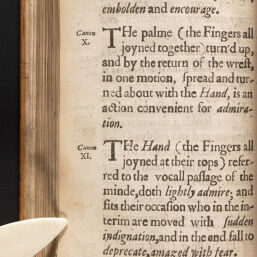 embolden and encourage.
Canon X.
THe palme (the Fingers all
joyned together) turn'd up,
and by the return of the wrest,
in one motion, spread and tur-
ned about with the Hand, is an
action convenient for admira-
tion.
Canon XI.
THe Hand (the Fingers all
joyned at their tops) refer-
red to the vocall passage of the
minde, doth lightly admire; and
fits their occasion who in the in-
terim are moved with sudden
indignation, and in the end fall to
deprecate, amazed with fear.